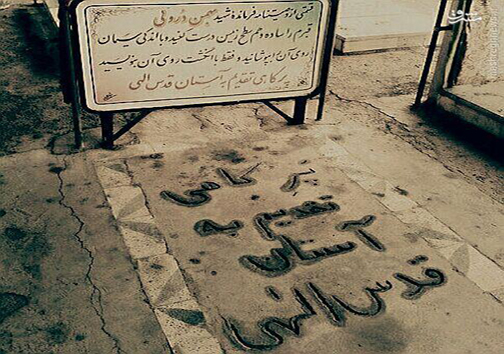 قسمتی از وصیتنامه فرمانده شهید حسن درولی
قبرم را ساده و هم سطح زمین درست کنید و با اندکی سیمان
روی آن را بپوشانید و فقط با انگشت روی آن بنویسید
پر کاهی تقدیم به آستان قدس الهی
پر کاهی
تقدیم به
آستان
قدس الهی